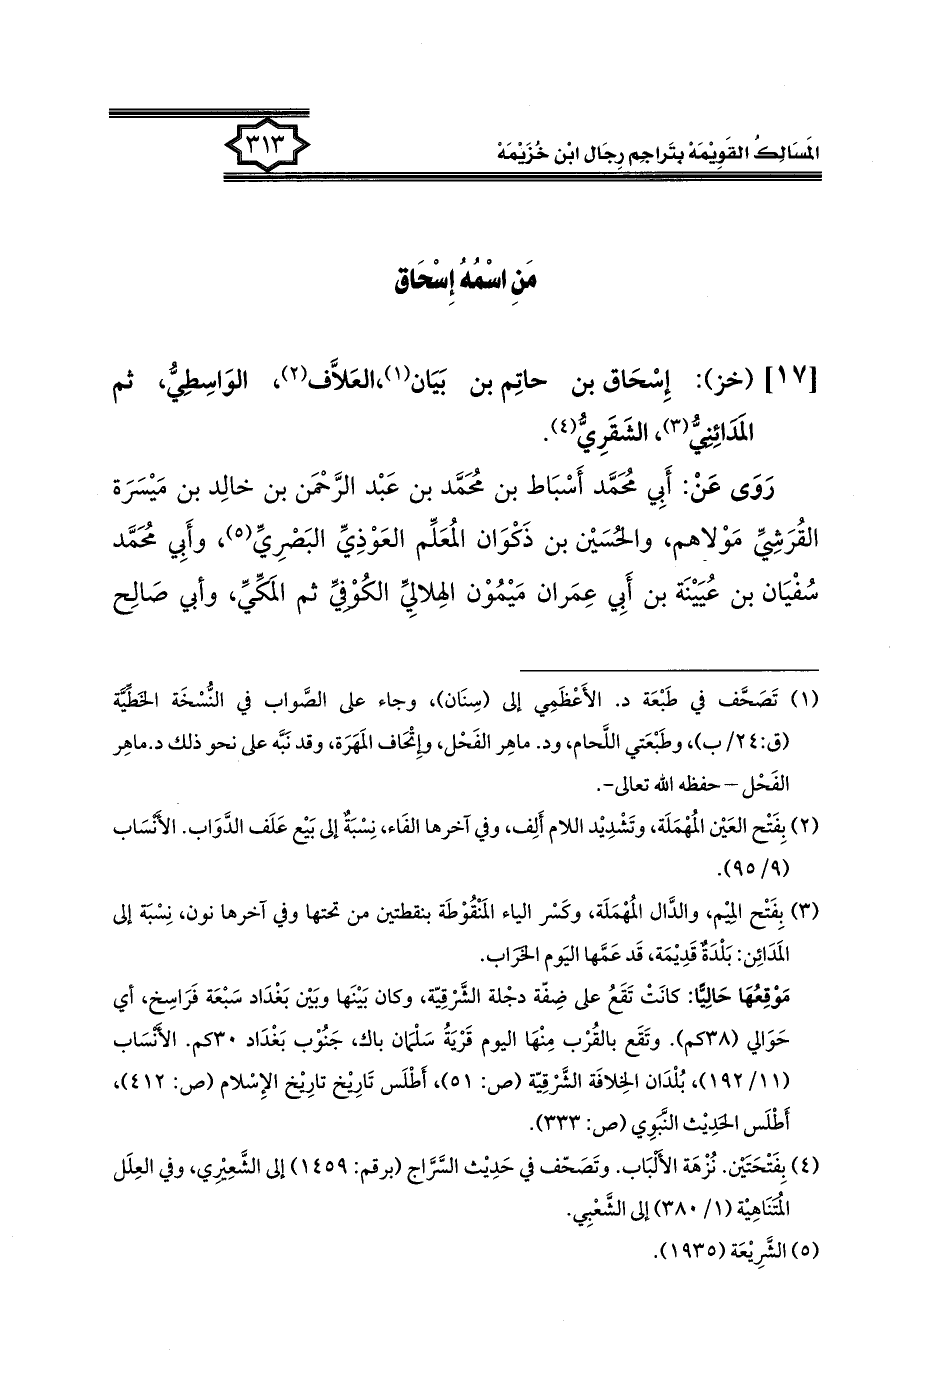 المَسَالِكُ القَوِيْمَةْ بِتَرَاجِمِ رِجَال ابْنِ خُزَيْمَةْ
٣١٣
مَنِ اسْمُهُ إِسْحَاق
[١٧] (خز): إِسْحَاق بن حاتِم بن بَيَان(١)،العَلاَّف(٢)، الوَاسِطِيُّ، ثم
المَدَائِنِيُّ(٣)، الشَقَرِيُّ(٤).
رَوَى عَنْ: أَبِي مُحَمَّد أَسْبَاط بن مُحَمَّد بن عَبْد الرَّحْمَن بن خالِد بن مَيْسَرَة
القُرَشِيِّ مَوْلاهم، والحُسَيْن بن ذَكْوَان المُعَلِّم العَوْذِيِّ البَصْرِيِّ(٥)، وأَبِي مُحَمَّد
سُفْيَان بن عُيَيْنَة بن أَبِي عِمَران مَيْمُوْن الهِلالِيِّ الكُوْفِيِّ ثم المَكِّيِّ، وأبي صَالِح
(١) تَصَحَّف في طَبْعَة د. الأَعْظَمِي إلى (سِنَان)، وجاء على الصَّواب في النُّسْخَة الخَطِّيَّة
(ق:٢٤/ ب)، وطَبْعَتي اللَّحام، ود. ماهِر الفَحْل، وإِتْحَاف المَهَرَة، وقد نَبَّه على نحو ذلك د.ماهِر
الفَحْل –حفظه الله تعالى-.
(٢) بِفَتْح العَيْن المُهْمَلَة، وتَشْدِيْد اللام أَلِف، وفي آخرها الفَاء، نِسْبَةٌ إلى بَيْع عَلَف الدَّوَاب. الأَنْسَاب
(٩/ ٩٥).
(٣) بِفَتْح المِيْم، والدَّال المُهْمَلَة، وكَسْر الياء المَنْقُوْطَة بنقطتين من تحتها وفي آخرها نون، نِسْبَة إلى
المَدَائِن: بَلْدَةٌ قَدِيْمَة، قَد عَمَّها اليَوم الخَرَاب.
مَوْقِعُهَا حَالِيًّا: كانَتْ تَقَعُ على ضِفّة دجْلة الشَّرْقِيّة، وكان بَيْنَها وبَيْن بَغْدَاد سَبْعَة فَرَاسِخ، أي
حَوَالي (٣٨كم). وتَقَع بالقُرْب مِنْها اليوم قَرْيَةُ سَلْمَان باك، جَنُوْب بَغْدَاد ٣٠كم. الأَنْسَاب
(١١/ ١٩٢)، بُلْدَان الخِلافَة الشَّرْقِيّة (ص: ٥١)، أَطْلَس تَارِيْخ تارِيْخ الإِسْلام (ص: ٤١٢)،
أَطْلَس الحَدِيْث النَّبَوِي (ص: ٣٣٣).
(٤) بِفَتْحَتَيْن. نُزْهَة الأَلْبَاب. وتَصَحّف في حَدِيْث السَّرَّاج (برقم: ١٤٥٩) إلى الشَّعِيْرِي، وفي العِلَل
المُتَنَاهِيْة (١/ ٣٨٠) إلى الشَّعْبِي.
(٥) الشَّرِيْعَة (١٩٣٥).